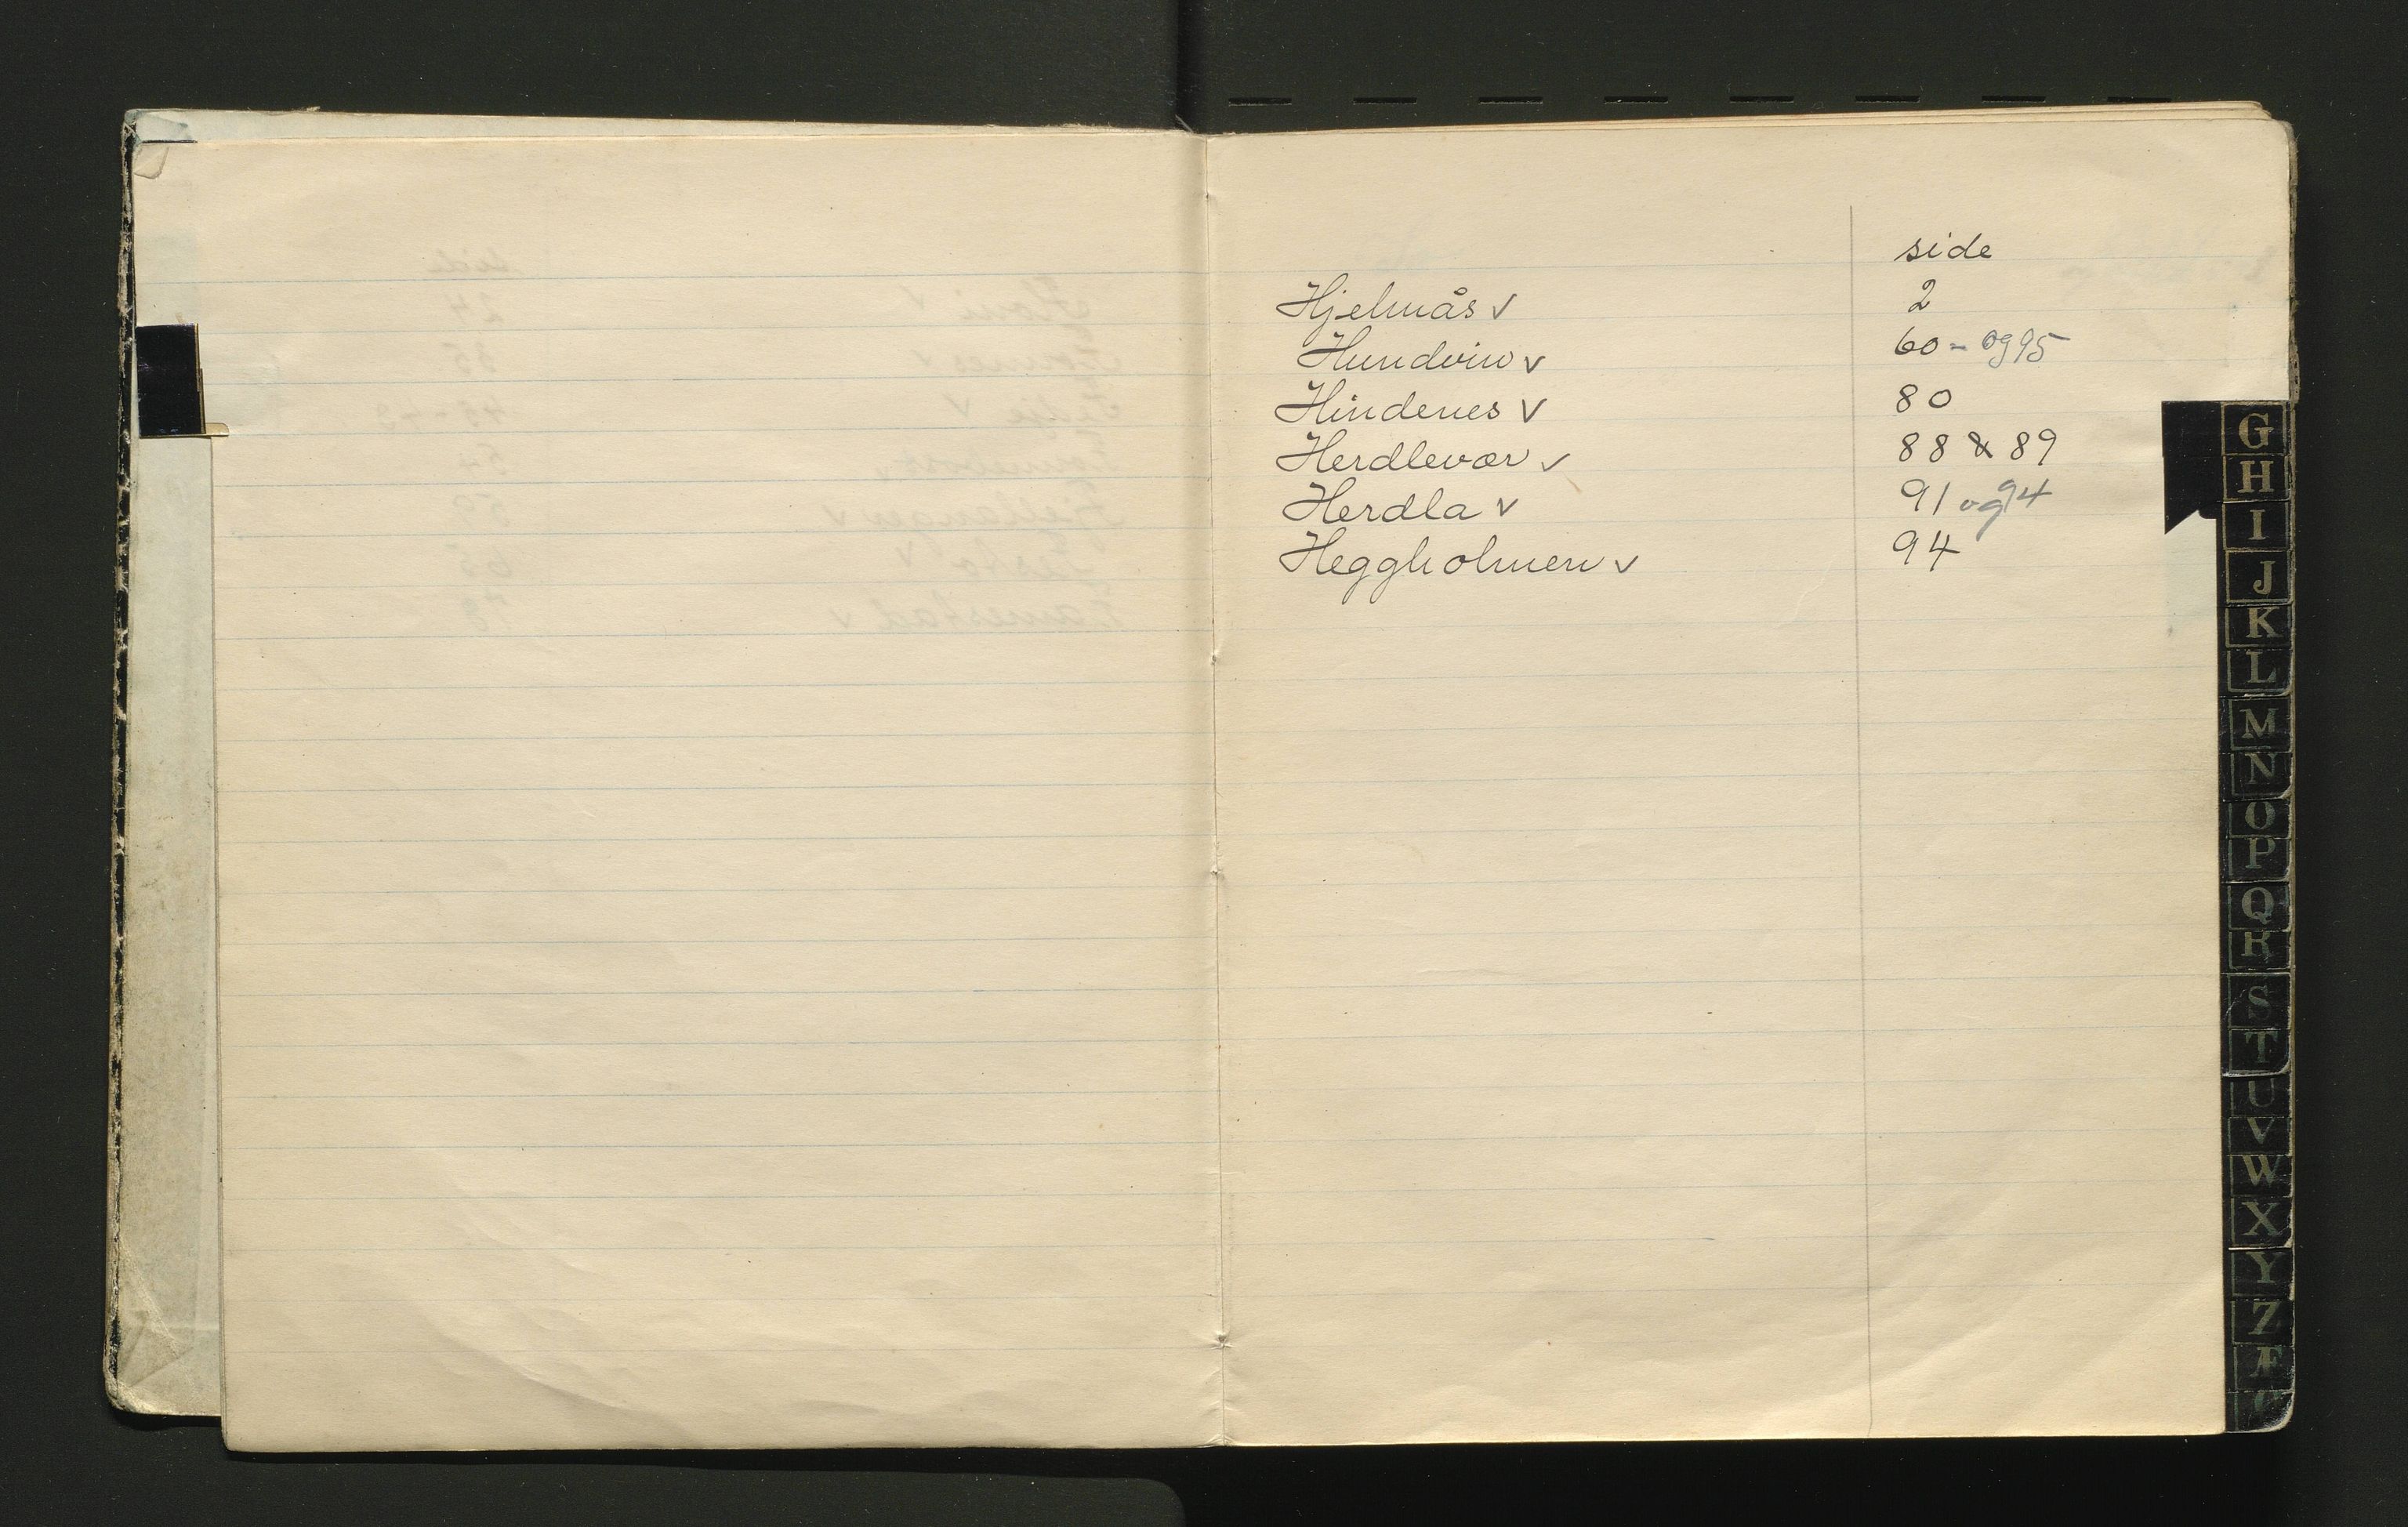 side
Hjelmås v 2
Hundvin v 60 - og 95
Hindenes v 80
Herdlevær v 88 & 89
Herdla v 91 og 94
Heggholmen v 94
G
H
I
J
K
L
M
N
O
P
Q
R
S
T
U
V
W
X
Y
Z
Æ